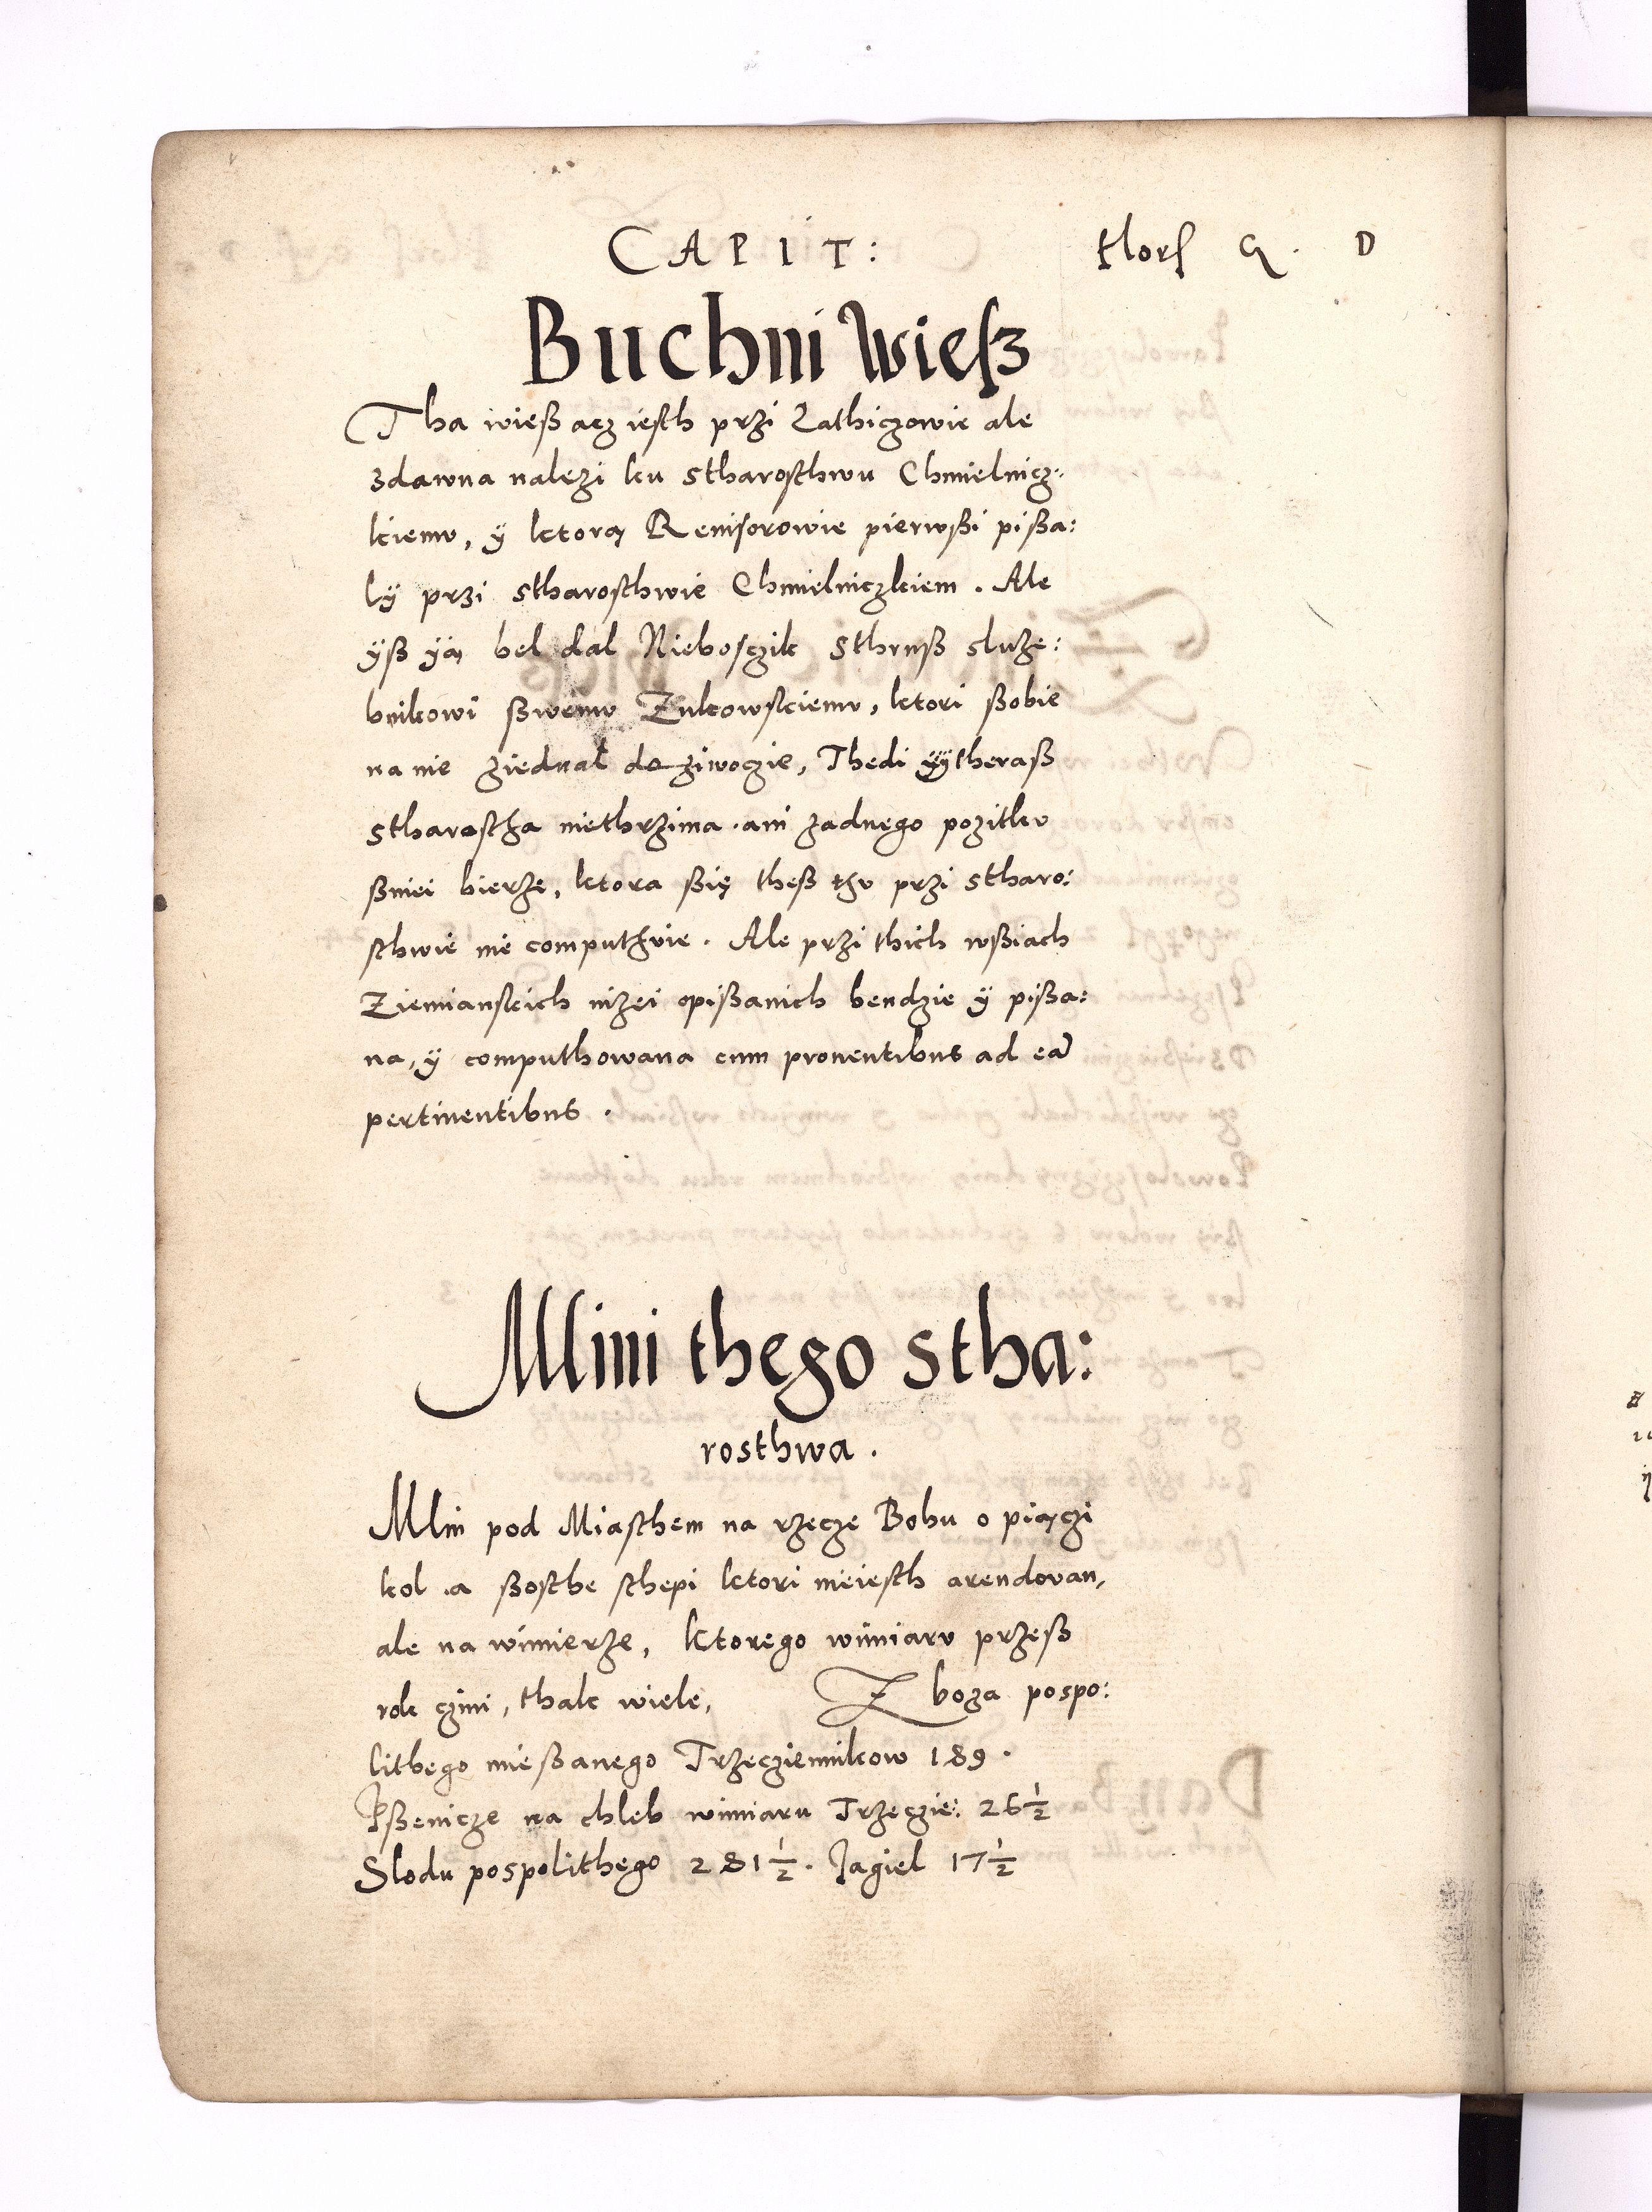 CAPIT: flors G. D
Buchni Wiesz
Tha wieß acz iesth przi Lathiczowie ale
zdawna nalezi ku stharosthwu Chmielnicz:
kiemu, ÿ ktorą Reuisorowie pierwßi pißa:
lÿ przi stharosthwie Chmielniczkiem. Ale
ÿß ÿą bel dal Nieboszik Sthruß służe:
bnikowi ßwemu Zulkowskiemu, ktori ßobie
na nie ziednał do ziwoczie, Thedi ÿ theraß
stharostha niethrzima ani zadnego pozitku
ßniei bierze, ktora ßię theß thu przi stharo:
sthwie nie computhuie. Ale przi thich wßiach
Ziemianskich nizei opißanich bendzie ÿ pißa:
na, ÿ computhowana cum prouentibus ad eã
pertinentibus.
Mlini thego stha:
rosthwa.
Mlin pod Miasthem na rzecze Bohu o piączi
kol a ßosthe sthepi ktori nieiesth arendouan,
ale na wimierze, ktorego wimiaru przeß
rok czini, thak wiele, Zboza pospo:
lithego mießanego Trzecziennikow 189.
Pßenicze na chleb wimiaru Trzeczie: 26½
Slodu pospolithego 281½. Jagiel 17½